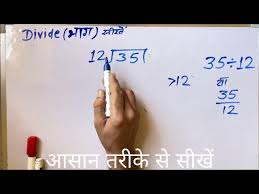 Divide (भाग) सीखें
12)35(
35÷12
>12
या
35
12
आसान तरीके से सीखें